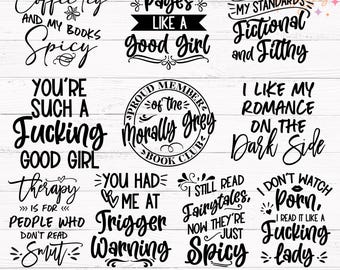 Coffee Icy
AND MY BOOKS
Spicy
Pages
LIKE A
Good Girl
MY STANDARDS
Fictional
and Filthy
YOU'RE
SUCH A
Fucking
GOOD GIRL
PROUD MEMBER
of the
Morally Grey
BOOK CLUB
I LIKE MY
ROMANCE
ON THE
Dark Side
Therapy
IS FOR
PEOPLE WHO
DON'T READ
Smut
YOU HAD
ME AT
Trigger
Warning
I STILL READ
Fairytales,
NOW THEY'RE
JUST
Spicy
I DON'T WATCH
Porn,
I READ IT LIKE A
Fucking
lady